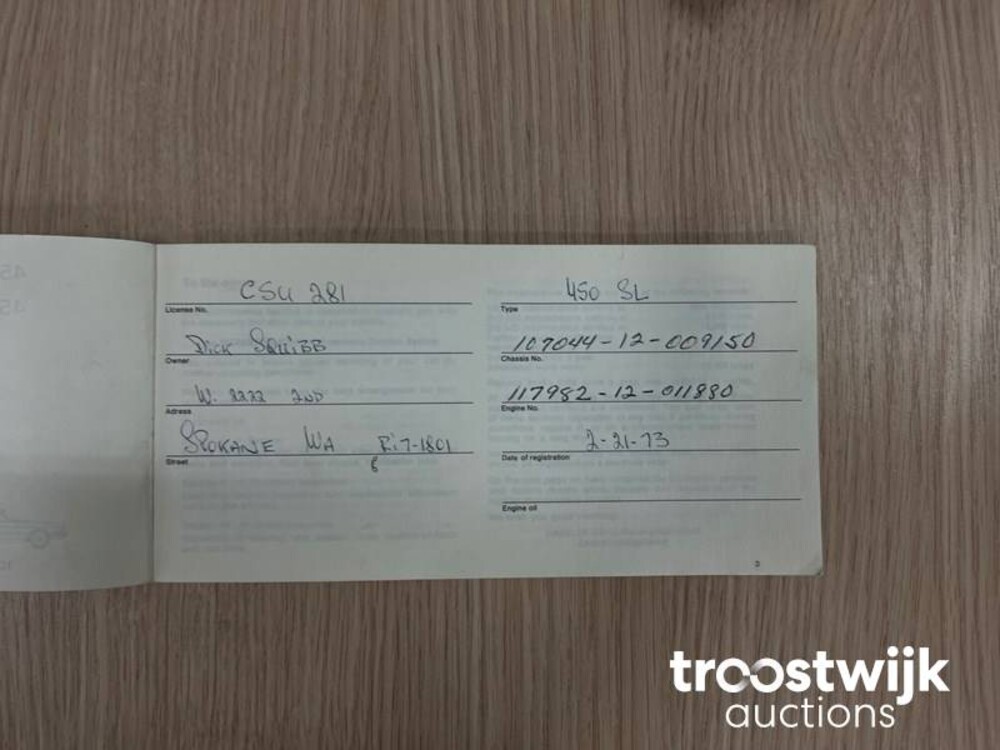 CSU 281
License No.
Dick SQUIBB
Owner
W. 2222 2ND
Adress
SPOKANE WA Ri7-1801
6
Street
450 SL
Type
107044-12-009150
Chassis No.
117982-12-011880
Engine No.
2-21-73
Date of registration
Engine oil
3
troostwijk
auctions